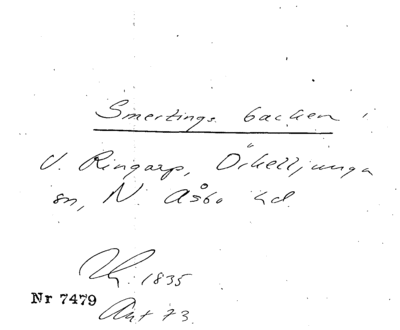 Smertings backen
V. Ringarp, Örkelljunga
sn, N. Åsbo hd.
1835
Nr 7479
Ant 73.